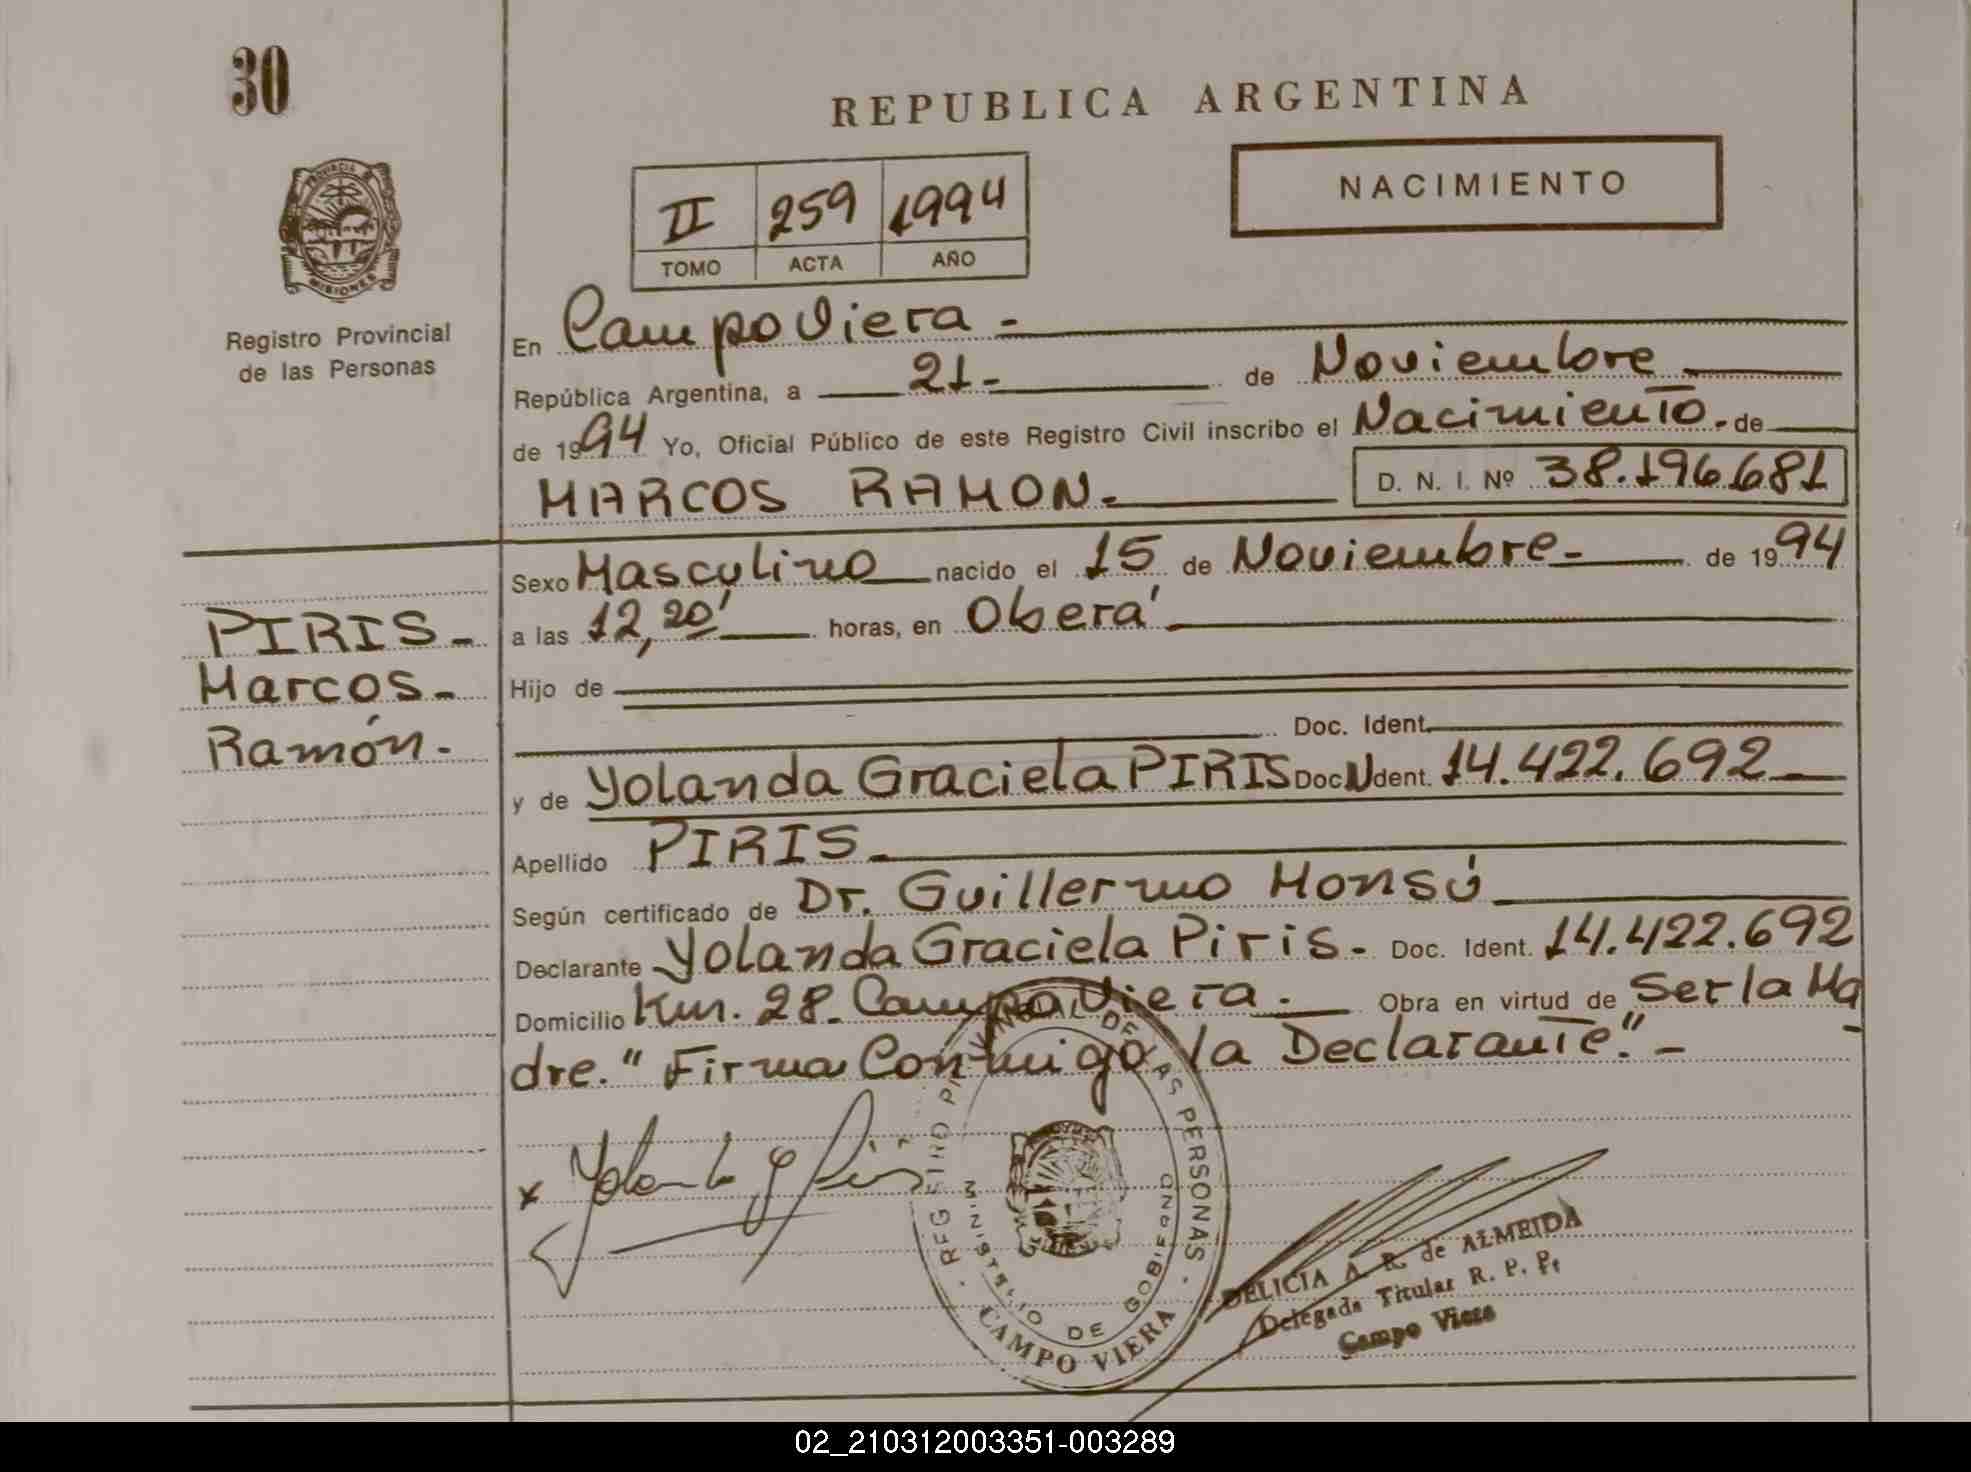 30
REPUBLICA ARGENTINA
NACIMIENTO
II 259 1994
TOMO ACTA AÑO
PROVINCIA D
MISIONES
Registro Provincial
de las Personas
En Campo Viera -
República Argentina, a 21- de Noviembre
de 1994 Yo, Oficial Público de este Registro Civil inscribo el Nacimiento. de
MARCOS RAMON. D. N. I. Nº 38.196.681
Sexo Masculino nacido el 15 de Noviembre- de 1994
a las 12,20' horas, en Oberá
Hijo de
Doc. Ident.
y de Yolanda Graciela PIRIS Doc. Ident. 14.422.692
Apellido PIRIS-
Según certificado de Dr. Guillermo Monsú
Declarante Yolanda Graciela Piris- Doc. Ident. 14.422.692
Domicilio Km. 28- Campo Viera. Obra en virtud de Ser la Ma
dre." Firma Conmigo la Declarante."-
PIRIS-
Marcos-
Ramón.
x Yolanda G Piris
REGISTRO PROVINCIAL DE LAS PERSONAS
MINISTERIO DE GOBIERNO
CAMPO VIERA
DELICIA A. R. de ALMEIDA
Delegada Titular R. P. P.
Campo Viera
02_210312003351-003289